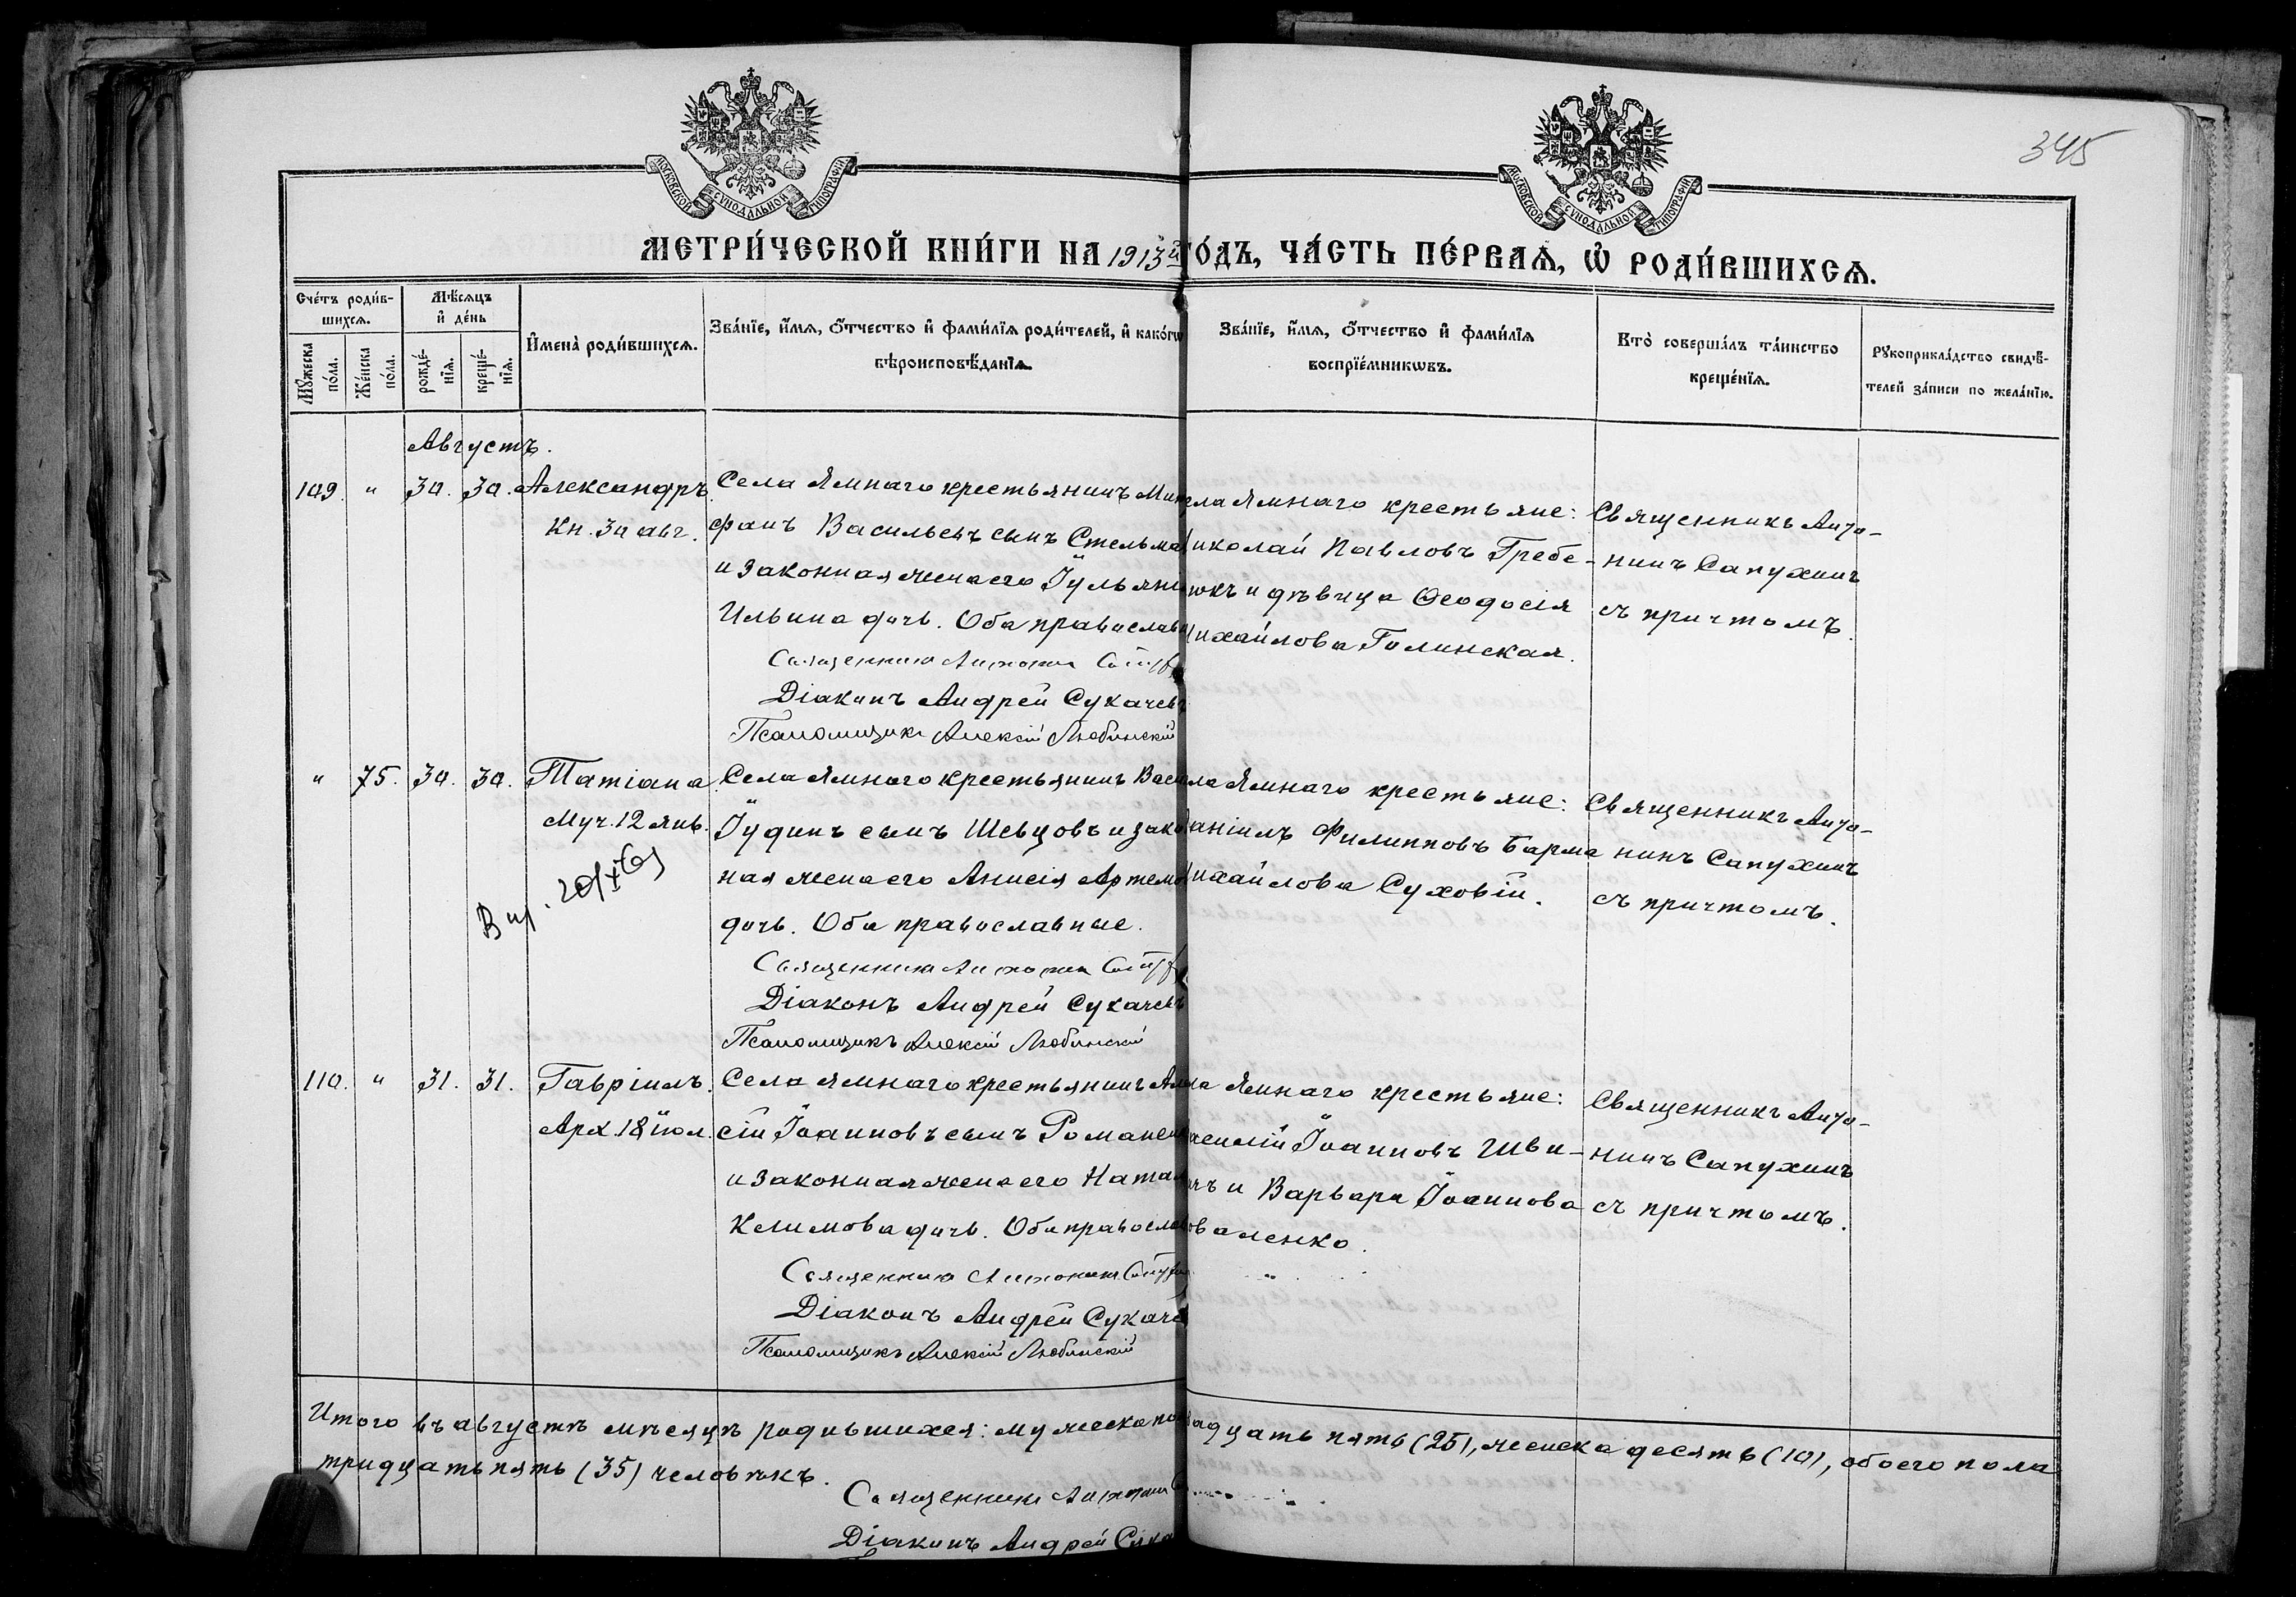 345
МОСКОВСКОЙ СѴНОДАЛЬНОЙ ТИПОГРАФІИ
МОСКОВСКОЙ СѴНОДАЛЬНОЙ ТИПОГРАФІИ
МЕТРИ́ЧЕСКОЙ КНИ́ГИ НА 1913й ГО́ДЪ, ЧА́СТЬ ПЕ́РВАѦ, Ѡ҆ РОДИ́ВШИХСѦ.
Сче́тъ роди́в-
шихсѧ.
Мѣ́сѧцъ
и҆ де́нь
Мꙋ́жеска
по́ла.
Же́нска
по́ла.
рожде́-
нїѧ.
креще́-
нїѧ.
И҆мена̀ роди́вшихсѧ.
Зва́нїе, и҆́мѧ, ѻ҆́тчество и҆ фами́лїѧ роди́телей, и҆ како́гѡ
вѣроисповѣ́данїѧ.
Зва́нїе, и҆́мѧ, ѻ҆́тчество и҆ фами́лїѧ
воспрїе́мникѡвъ.
Кто̀ соверша́лъ та́инство
креще́нїѧ.
Рꙋкоприкла́дство свидѣ́-
телей за́писи по жела́нїю.
Августъ.
109. " 30. 30. Александръ.
Кн. 30 авг.
Села Ямнаго крестьянинъ Мит
фанъ Васильевъ сынъ Стельма
и законная жена его Іульяні
Ильина дочь. Оба православн
Священникъ Антонин
Діаконъ Андрей Сукачевъ
Псаломщикъ Алексій Любинскій
ела Ямнаго крестьяне:
иколай Павловъ Гребе-
юкъ и дѣвица Ѳеодосія
ихайлова Голинская.
Священникъ Анто-
нинъ Сапухинъ
съ причтомъ.
" 75. 30. 30. Татіана.
Муч. 12 янв.
Села Ямного крестьянинъ Васи
Іудинъ сынъ Шевцовъ и зако
ная жена его Анисія Артемо
дочь. Оба православные.
Священникъ Антонин
Діаконъ Андрей Сукачевъ
Псаломщикъ Алексій Любинскій
ла Ямнаго крестьяне:
аніилъ Филипповъ Барма
ихайлова Суховій.
Священникъ Анто-
нинъ Сапухинъ
съ причтомъ.
110. " 31. 31. Гавріилъ.
Арх. 13 іюл.
Села Ямнаго крестьянинъ Але
сій Іоанновъ сынъ Романен
и законная жена его Натал
Климова дочь. Оба православ
Священникъ Антонинъ
Діаконъ Андрей Сукаче
Псаломщикъ Алексій Любинскій
ла Ямнаго крестьяне:
асилій Іоанновъ Шви-
чъ и Варвара Іоаннова
оваленко.
Священникъ Анто-
нинъ Сапухинъ
съ причтомъ.
Итого въ августѣ мѣсяцѣ родившихся: мужеска по адцать пять (25), женска десять (10), обоего пола
тридцать пять (35) человѣкъ.
Священникъ Антонин
Діаконъ Андрей Сука